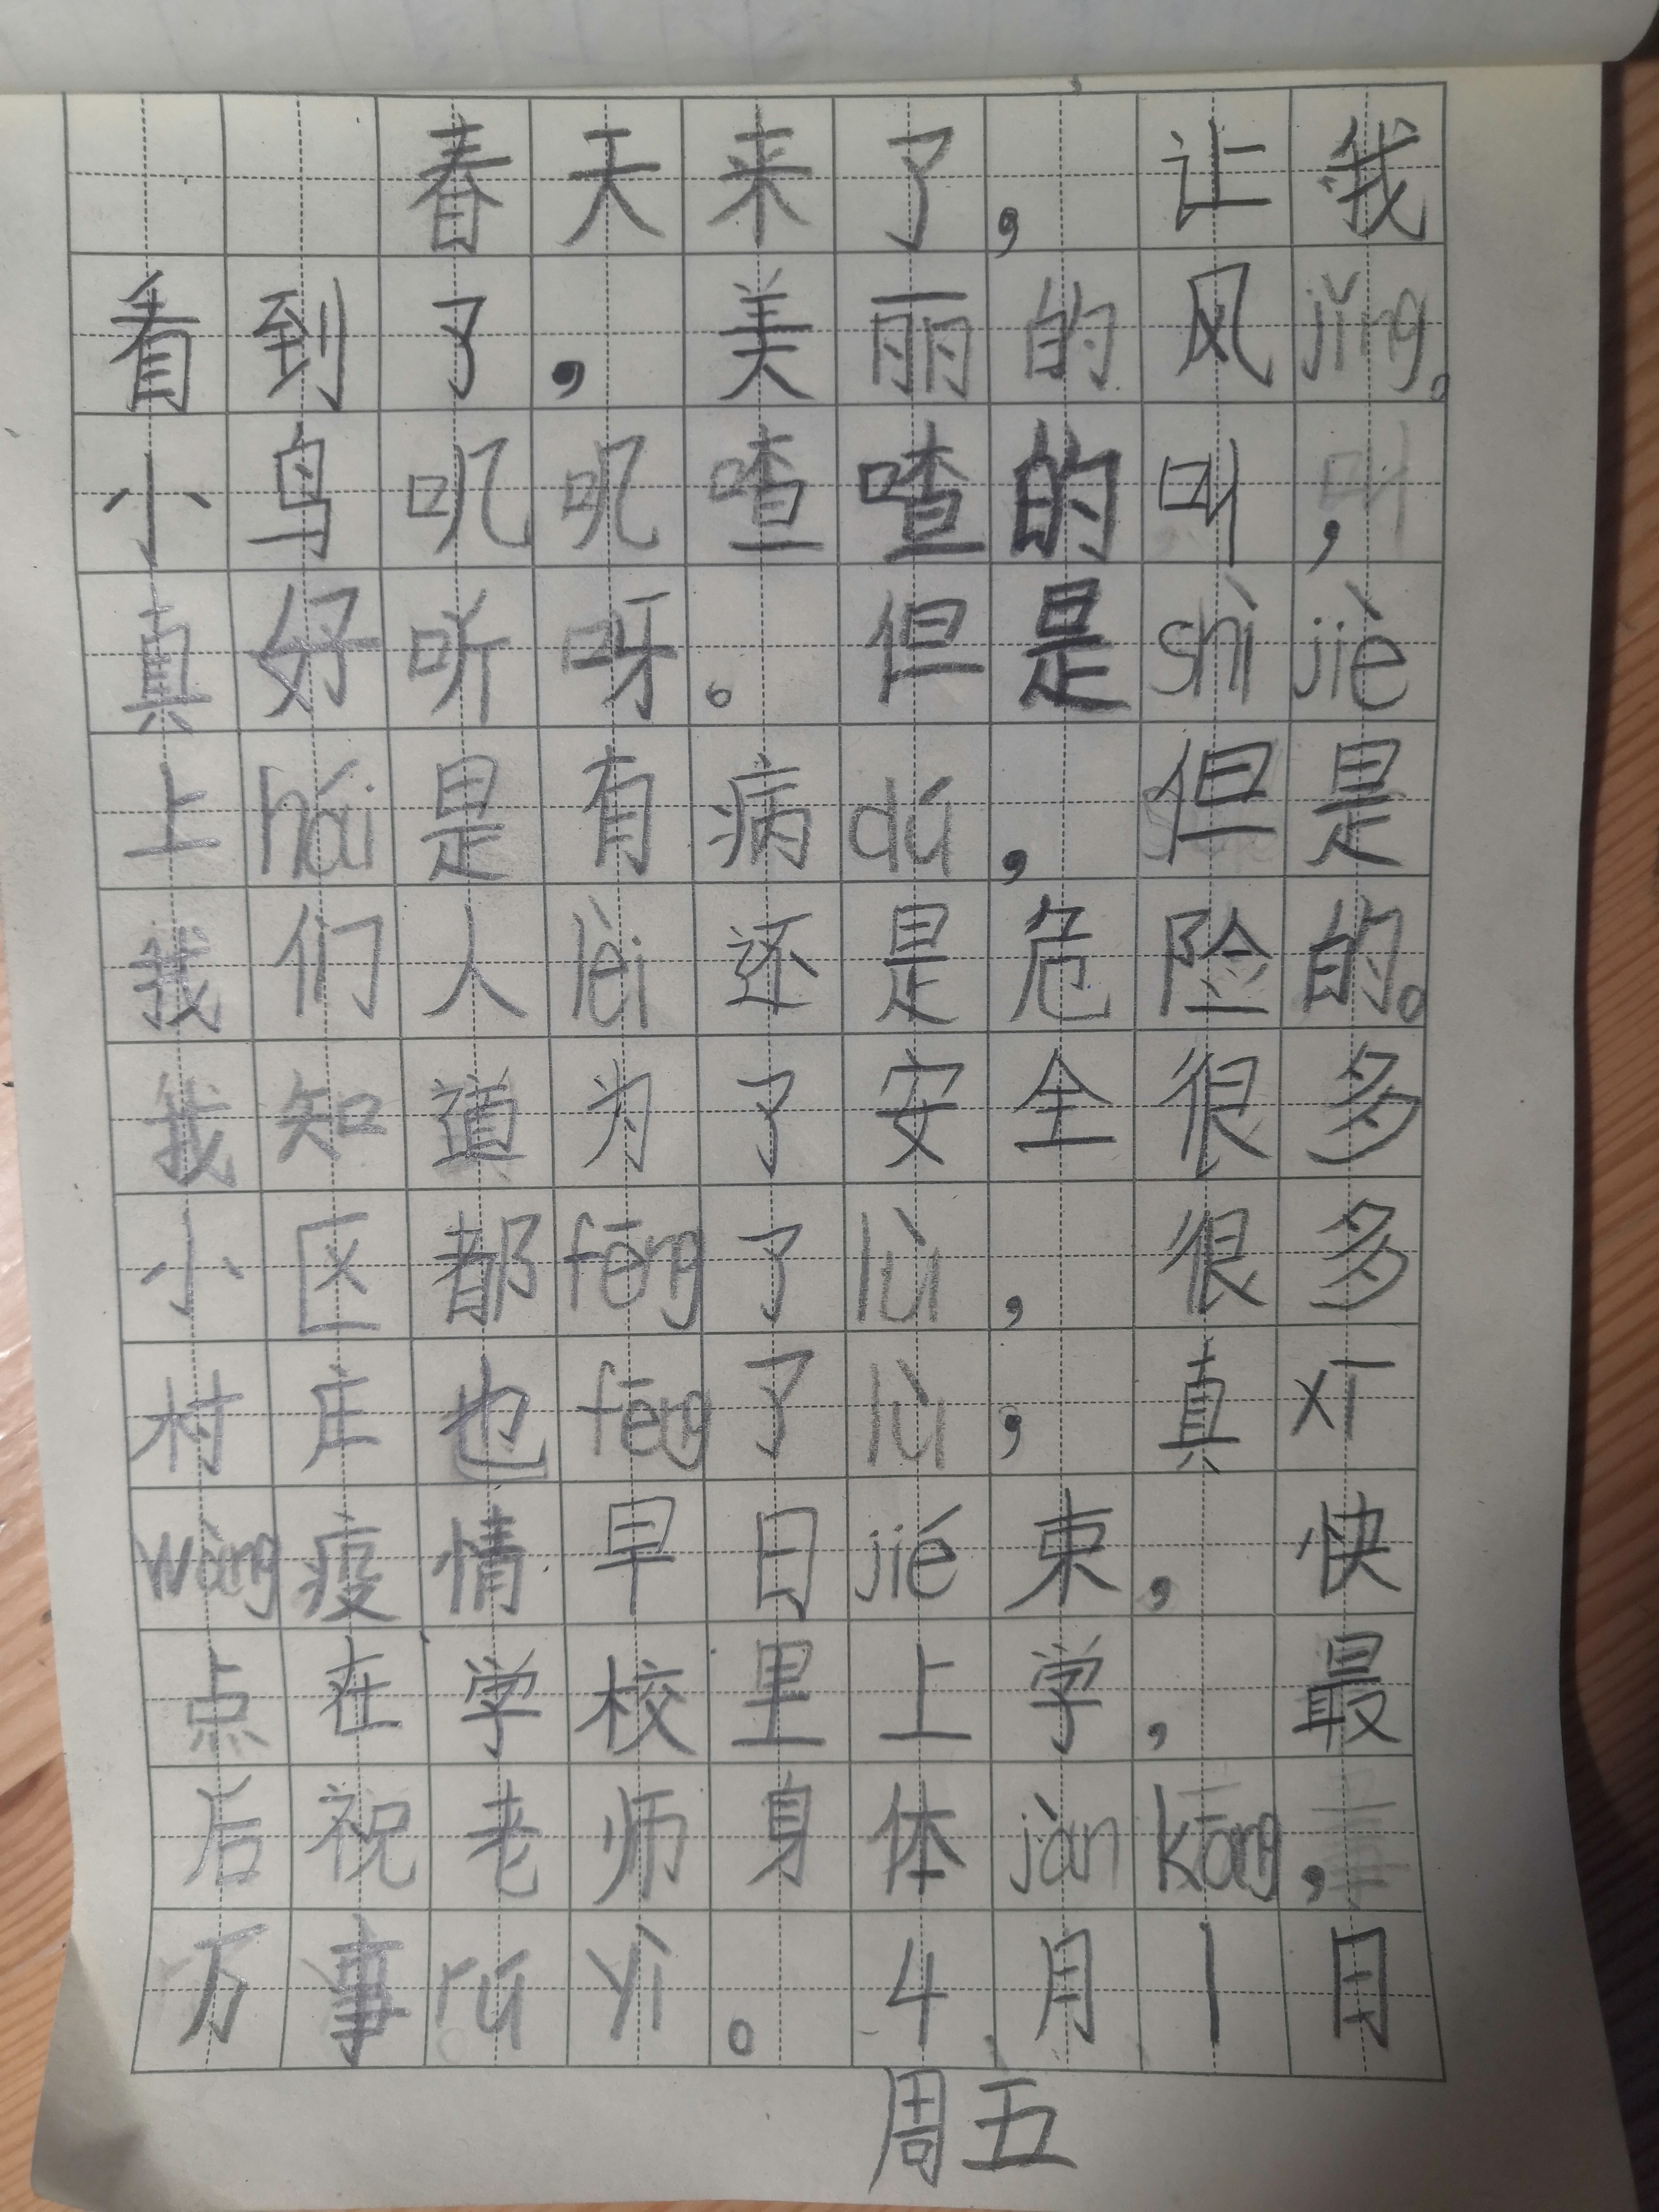 春天来了，让我
看到了，美丽的风jǐng。
小鸟叽叽喳喳的叫，
真好听呀。但是shì jiè
上hái是有病dú，但是
我们人lèi还是危险的。
我知道为了安全很多
小区都fēng了lù，很多
村庄也fēng了lù，真xī
wàng疫情早日jié束，快
点在学校里上学，最
后祝老师身体jàn kāng，
万事rú yì。4月1日
周五